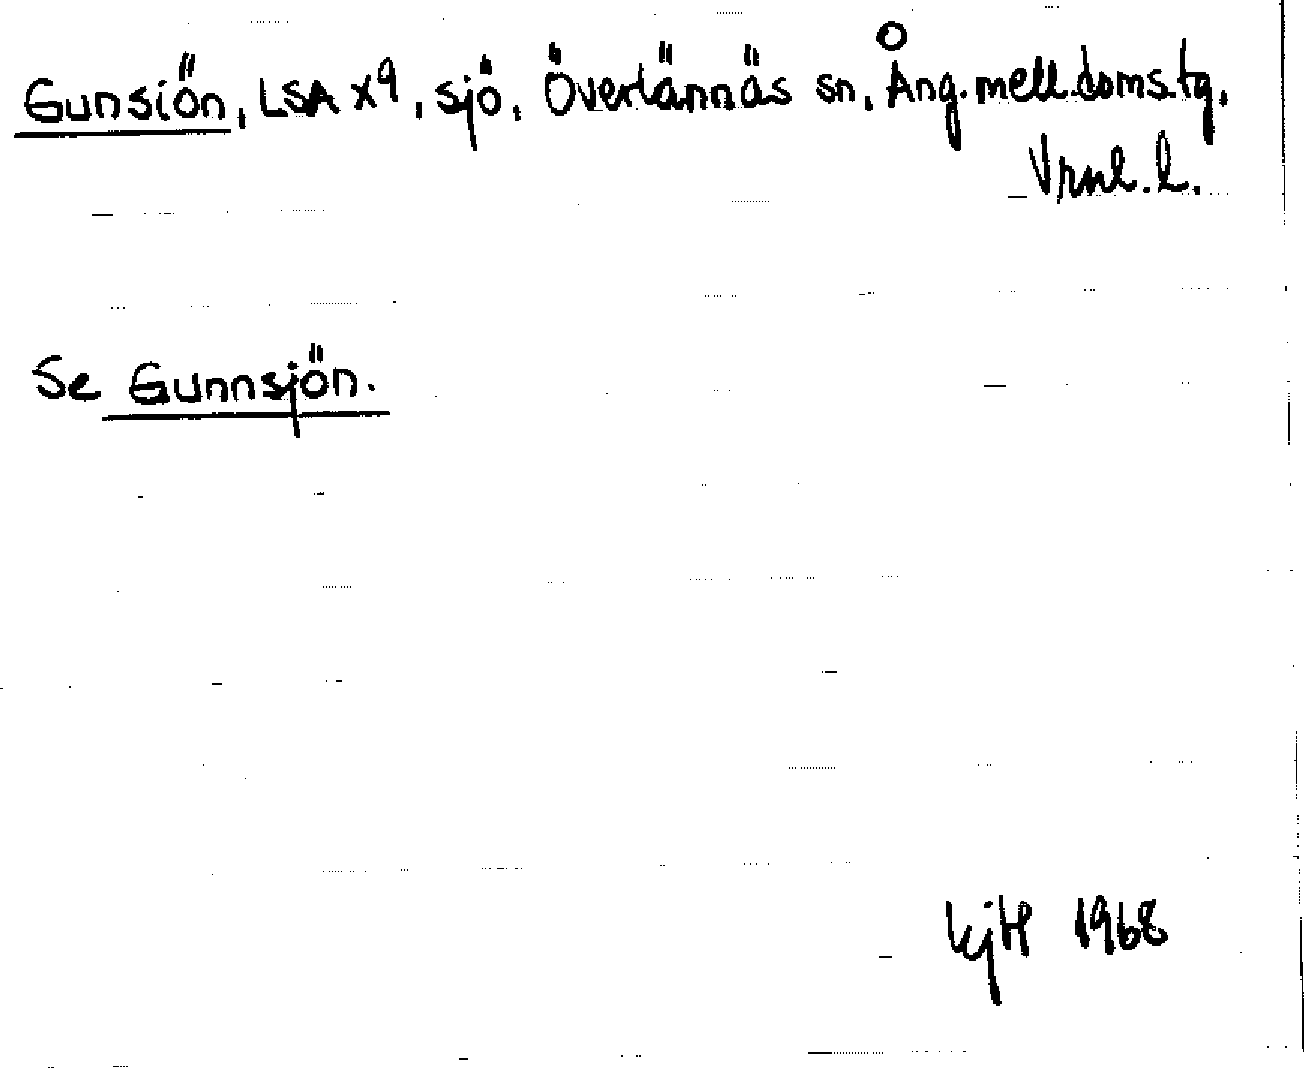 Gunsiön, LSA X9, sjö, Överlännäs sn, Ång. mell. doms. tg,
Vrnl. l.
Se Gunnsjön.
KjH 1968